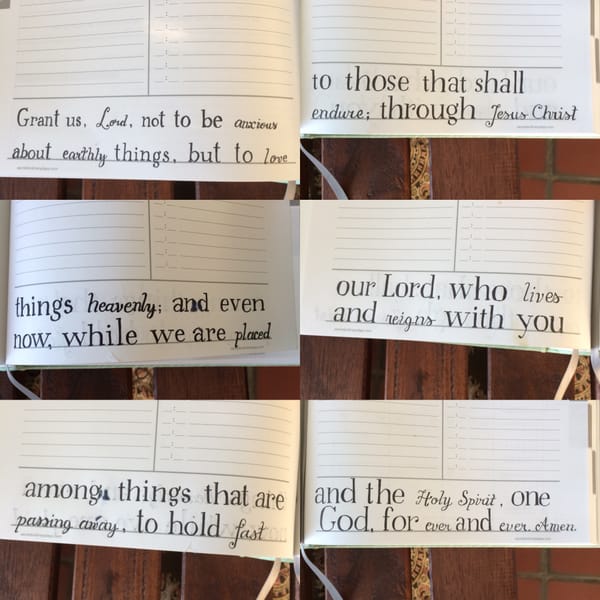 Grant us, Lord, not to be anxious
about earthly things, but to love
things heavenly; and even
now, while we are placed
among things that are
passing away, to hold fast
to those that shall
endure; through Jesus Christ
our Lord, who lives
and reigns with you
and the Holy Spirit, one
God, for ever and ever. Amen.